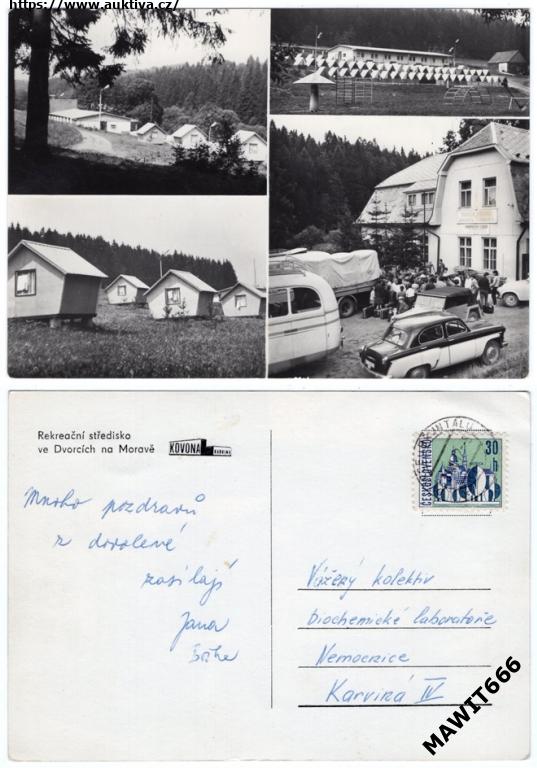 https://www.auktiva.cz/
Rekreační středisko
ve Dvorcích na Moravě
KOVONA
KARVINÁ
ČESKOSLOVENSKO
30
h
Mnoho pozdravů
z dovolené
zasílají
Jana
Vážený kolektiv
biochemické laboratoře
Nemocnice
Karviná IV
MAWIT666